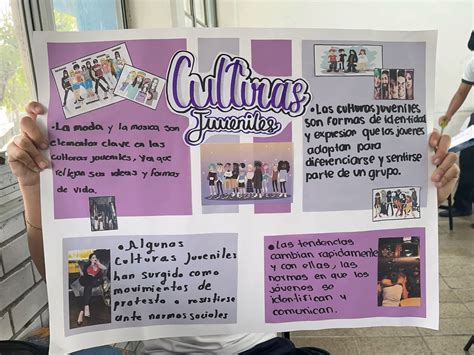 Culturas
Juveniles
• La moda y la musica, son
elementos clave en las
culturas juveniles, ya que
reflejan sus ideas y formas
de vida.
• Las culturas juveniles
son formas de identidad
y expresion que los jóvenes
adoptan para
diferenciarse y sentirse
parte de un grupo.
• Algunas
Culturas Juveniles
han surgido como
movimientos de
protesta o resistirse
ante normas sociales
• Las tendencias
cambian rapidamente
y con ellas, las
normas en que los
jóvenes se
identifican y
comunican.